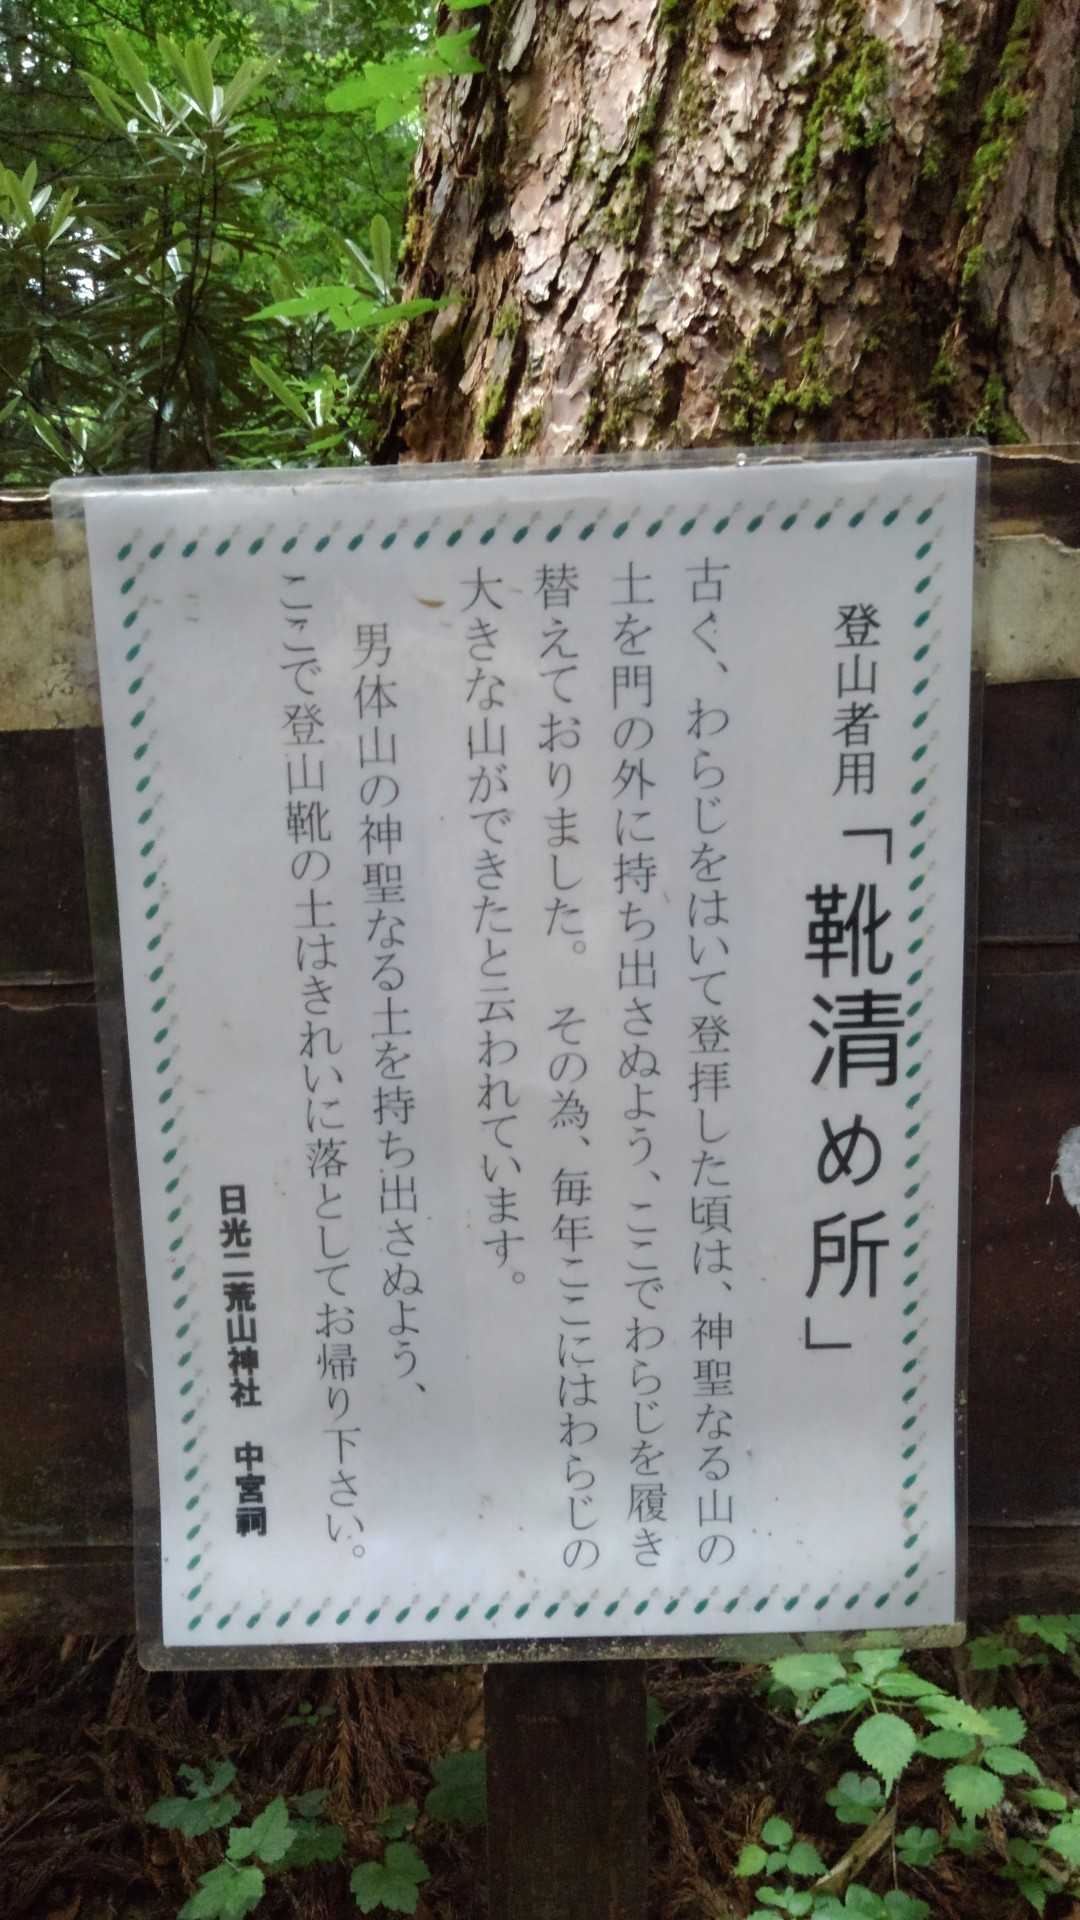 登山者用「靴清め所」
古く、わらじをはいて登拝した頃は、神聖なる山の
土を門の外に持ち出さぬよう、ここでわらじを履き
替えておりました。 その為、毎年ここにはわらじの
大きな山ができたと云われています。
男体山の神聖なる土を持ち出さぬよう、
ここで登山靴の土はきれいに落としてお帰り下さい。
日光二荒山神社 中宮祠